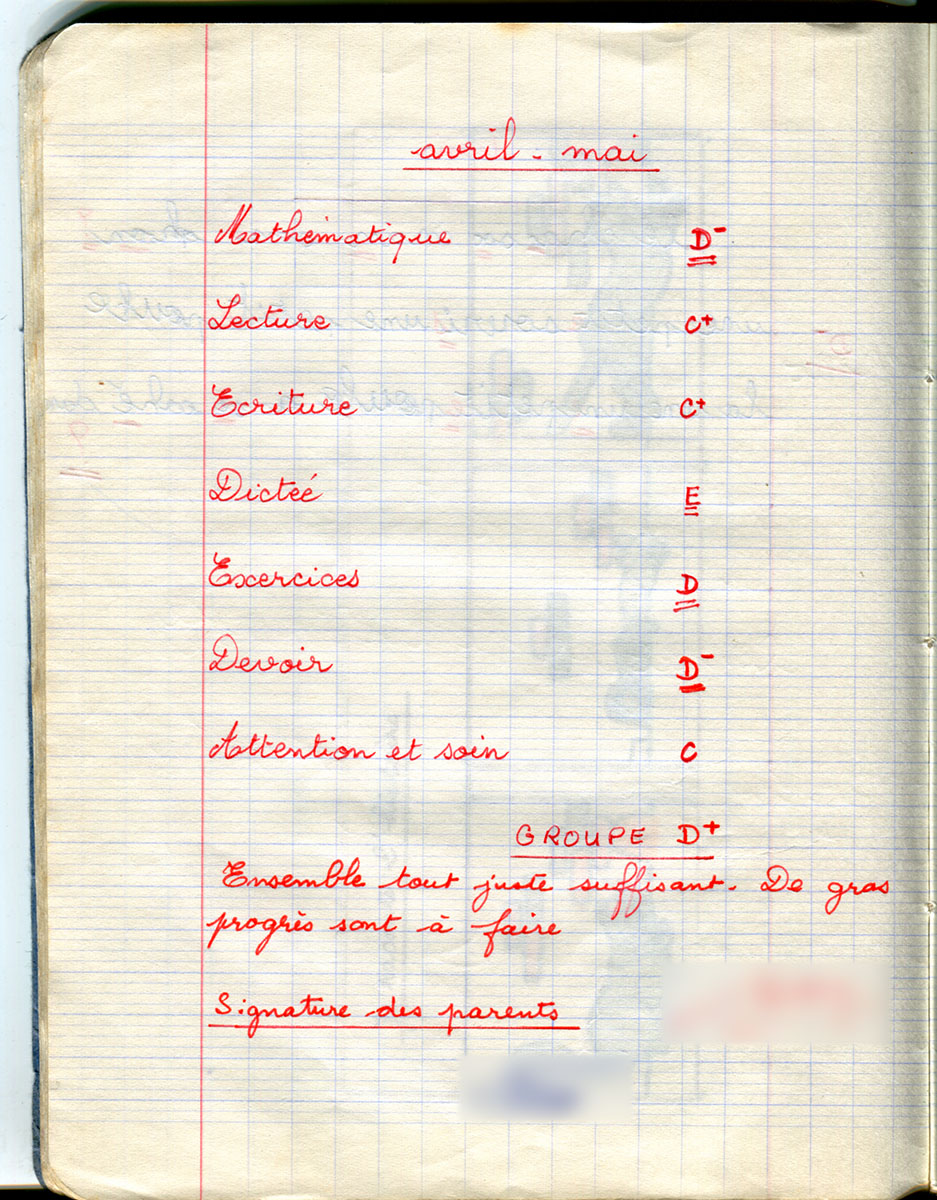 avril - mai
Mathématique D-
Lecture C+
Ecriture C+
Dicteé E
Exercices D
Devoir D-
Attention et soin C
GROUPE D+
Ensemble tout juste suffisant. De gros
progrès sont à faire
Signature des parents